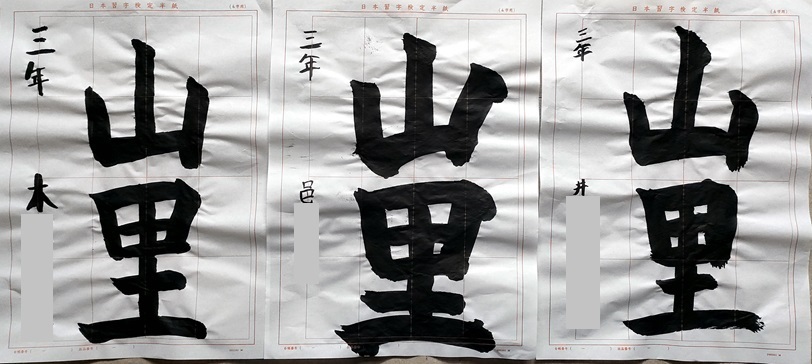 日本習字検定半紙
山里
三年
木
日本習字検定半紙
山里
三年
邑
日本習字検定半紙
山里
三年
井